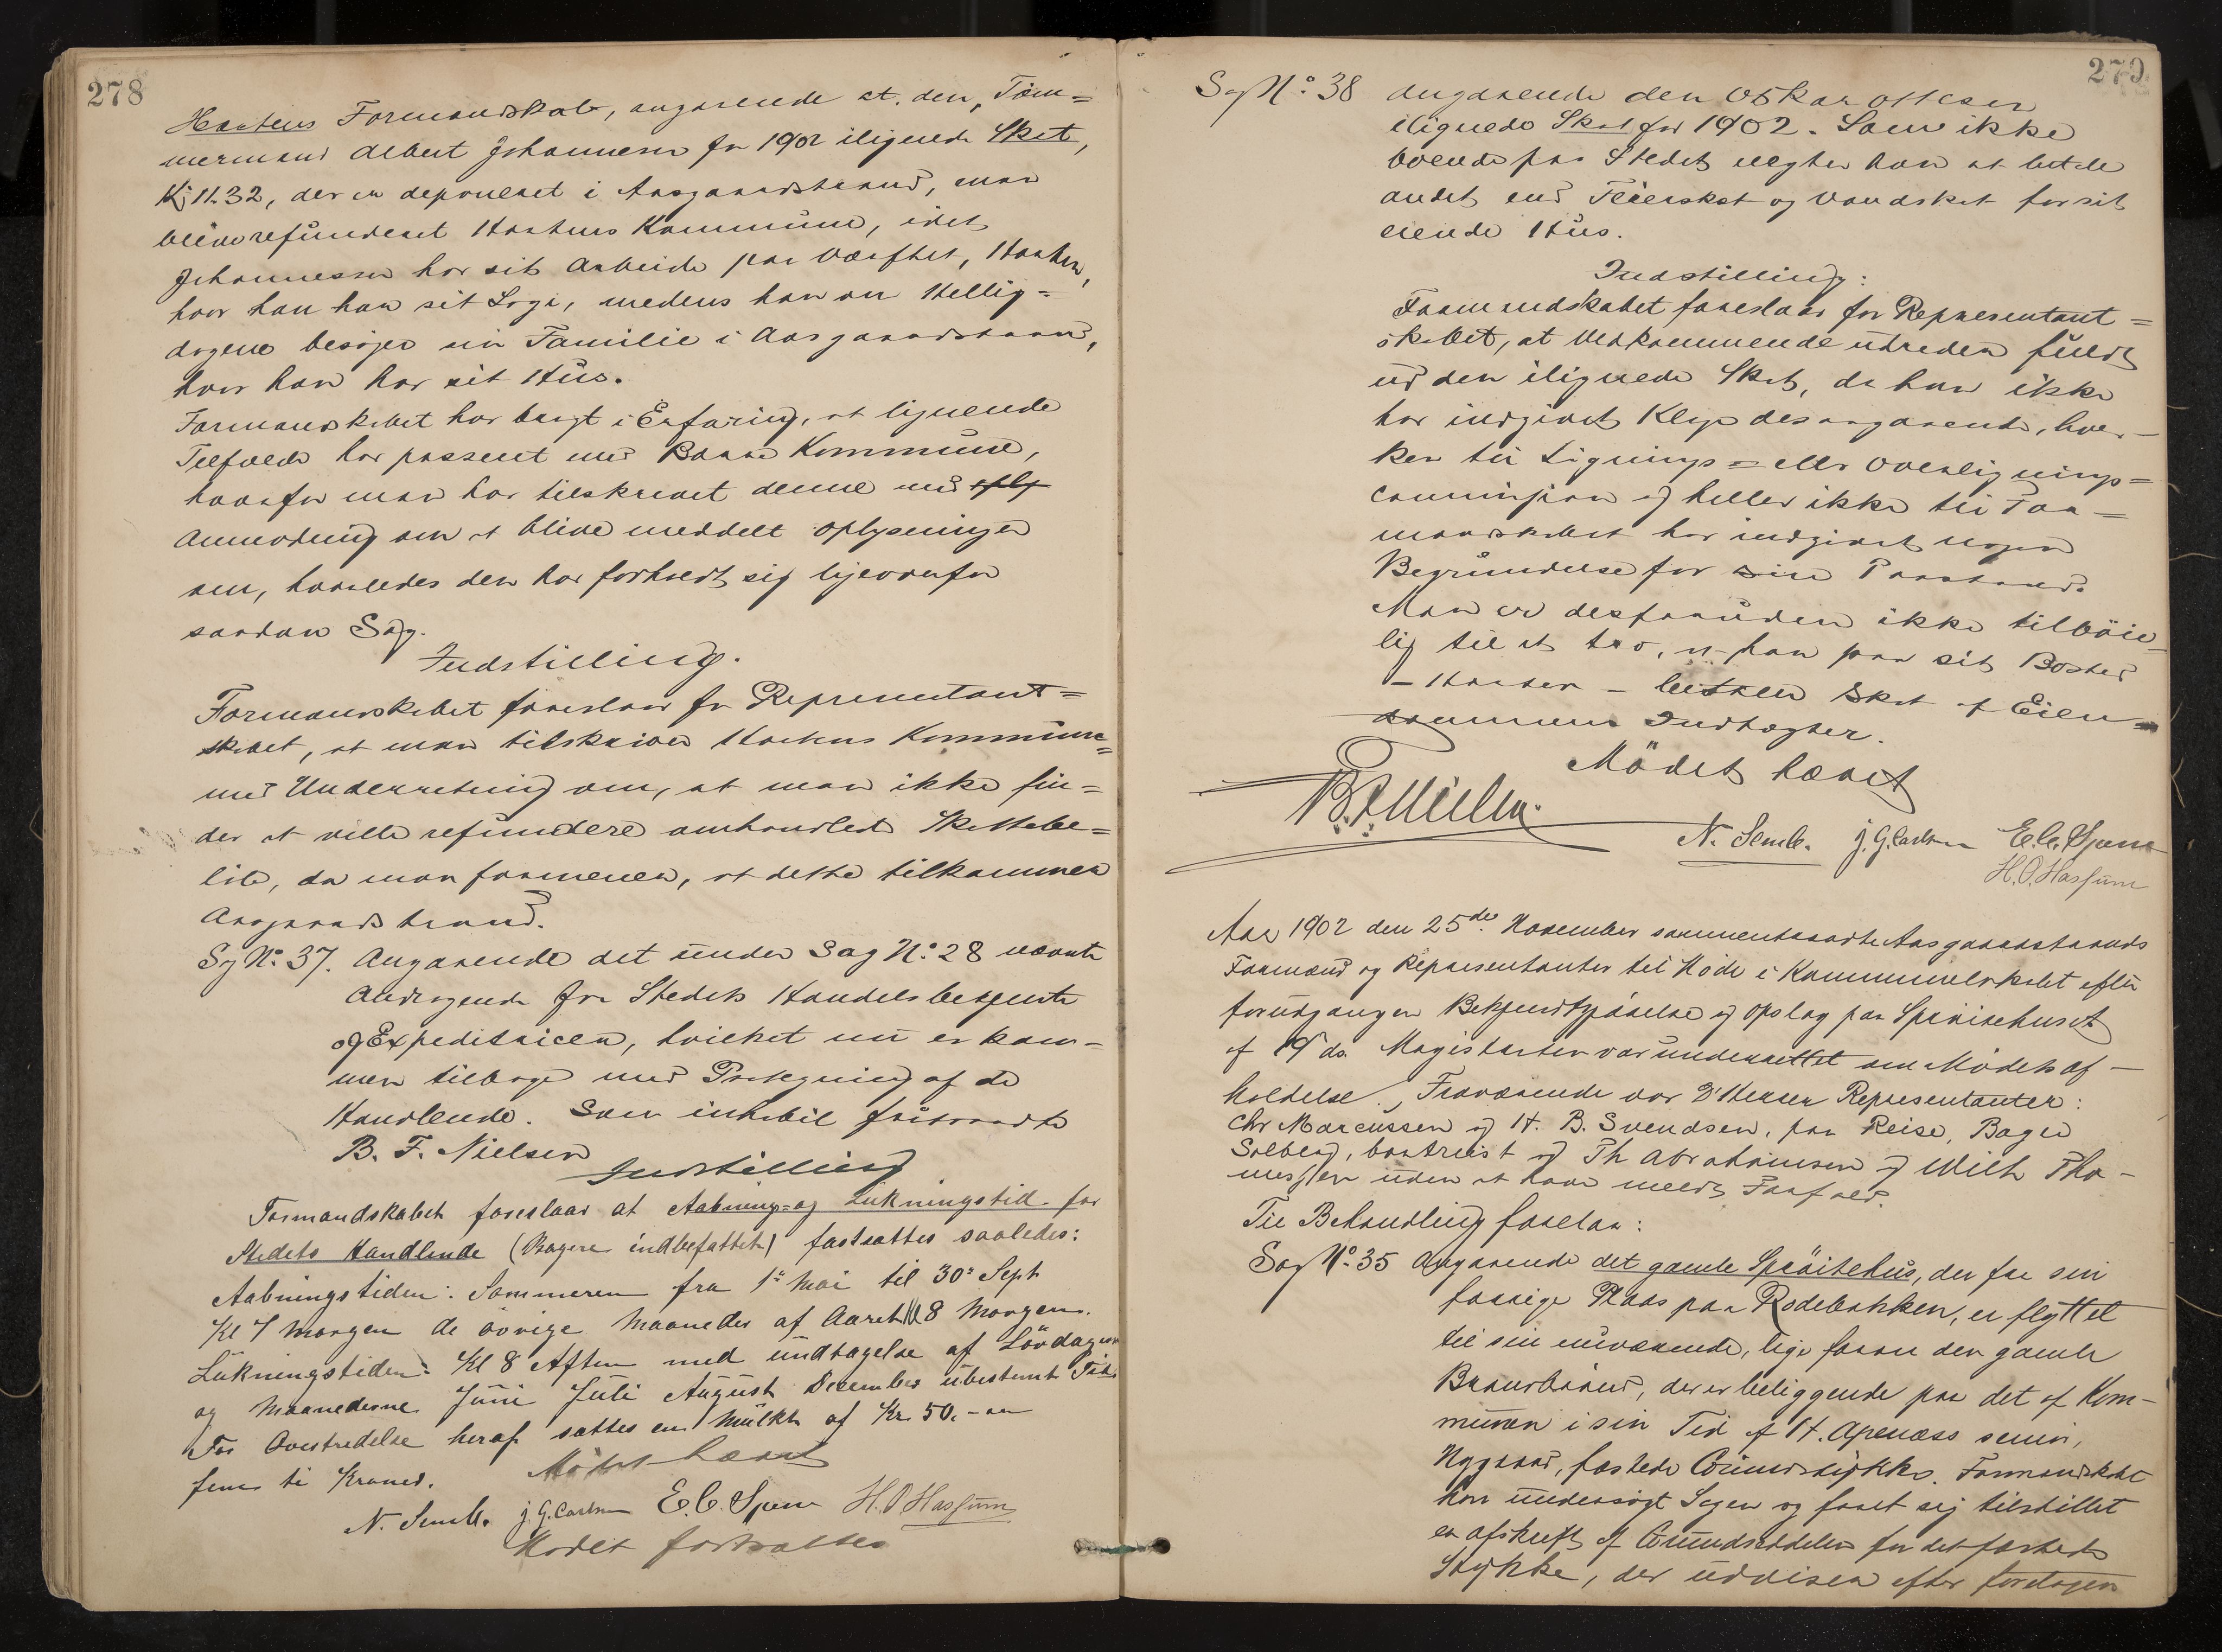 278
Hortens Formandskab, angaaende at den, Töm=
mermand Albert Johannesen for 1902 ilignede Skat,
Kr 11.32, der er deponeret i Aasgaardstrand, maa
blive refunderet Hortens Kommune, idet
Johannesen har sit Arbeide paa Værftet, Horten,
hvor han har sit Logi, medens han om Hellig=
dagene besøger sin Familie i Aasgaardstrand,
hvor han har sit Hus.
Formandskabet har bragt i Erfaring, at lignende
Tilfælde har passeret med Borre Kommune,
hvorfor man har tilskrevet denne med
Anmodning om at blive meddelt Oplysninger
om, hvorledes den har forholdt sig ligeoverfor
saadan Sag.
Indstilling.
Formandskabet foreslaar for Representant=
skabet, at man tilskriver Hortens Kommune=
med Underretning om, at man ikke fin=
der at ville refundere omhandlede Skattebe=
löb, da man formener, at dette tilkommer
Aasgaardstrand.
Sag No. 37. Angaaende det under Sag No. 28 nævnte
Andragende fra Stedets Handelsbetjente
og Expeditricer, hvilket nu er kom-
men tilbage med Paategning af de
Handlende. Som inhabil fratraadte
B. F. Nielsen
Indstilling
Formandskabet foreslaar at Aabnings= og Lukningstid for
Stedets Handlende (Bagere indbefattet) fastsættes saaledes:
Aabningstiden: Sommeren fra 1te Mai til 30te Sept
Kl 7 morgen de övrige Maaneder af Aaret Kl 8 Morgen.
Lukningstiden: Kl 8 Aften med undtagelse af Lördagen
og Maanederne Juni Juli August December ubestemt Tid.
For Overtredelse heraf sættes en Mulkt af Kr. 5
femti Kroner. Mödet hævet
N. Semb. J. G. Carlsen E. C. Spone H. O. Hassum
Mödet fortsættes
279
Sag No. 38 angaaende den Oskar Ottesen
ilignede Skat for 1902. Som ikke
boende paa Stedet negter han at betale
andet end Feierskat og Vandskat for sit
eiende Hus.
Indstilling:
Formandskabet foreslaar for Representant=
skabet, at Vedkommende utreder fuldt
ud den ilignede Skat, da han ikke
har indgivet Klage desangaaende, hver-
ken til Lignings= eller Overlignings=
commission og heller ikke til For=
mandskabet har indgivet nogen
Begrundelse for sin Paastand.
Man er desforuden ikke tilböie-
lig til at tro, at han paa sit Bosted
- Horten - betaler Skat af Eien=
dommens Indtægter.
Mödet hævet
B. F. Nielsen.
N. Semb. J. G. Carlsen E. C. Spone
H. O. Hassum
Aar 1902 den 25de November sammentraadte Aasgaardstrands
Formænd og Representanter til Möde i Kommunelokalet efter
forudgangen Bekjendtgjörelse og Opslag paa Spröitehuset
af 19 ds. Magistraten var underrettet om Mödets af-
holdelse. Fraværende var D'Herrer Representanter:
Chr Marcussen og H. B. Svendsen, paa Reise, Bager
Solberg, bortreist og Th Abrahamsen og Wilh Tho-
messen uden at have meldt Forfald.
Til Behandling forelaa:
Sag No. 35 Angaaende det gamle Spröitehus, der fra sin
forrige Plads paa Rodebakken, er flyttet
til sin nuværende, lige foran den gamle
Brandbrönd, der er beliggende paa det af Kom-
munen i sin Tid af H. Apenæss senior,
Nygaard, fæstede Grundstykke. Formandskabet
har undersøgt Sagen og faaet sig tilstillet
en afskrift af Grundseddelen for det fæstede
Stykke, der udviser efter foretagen